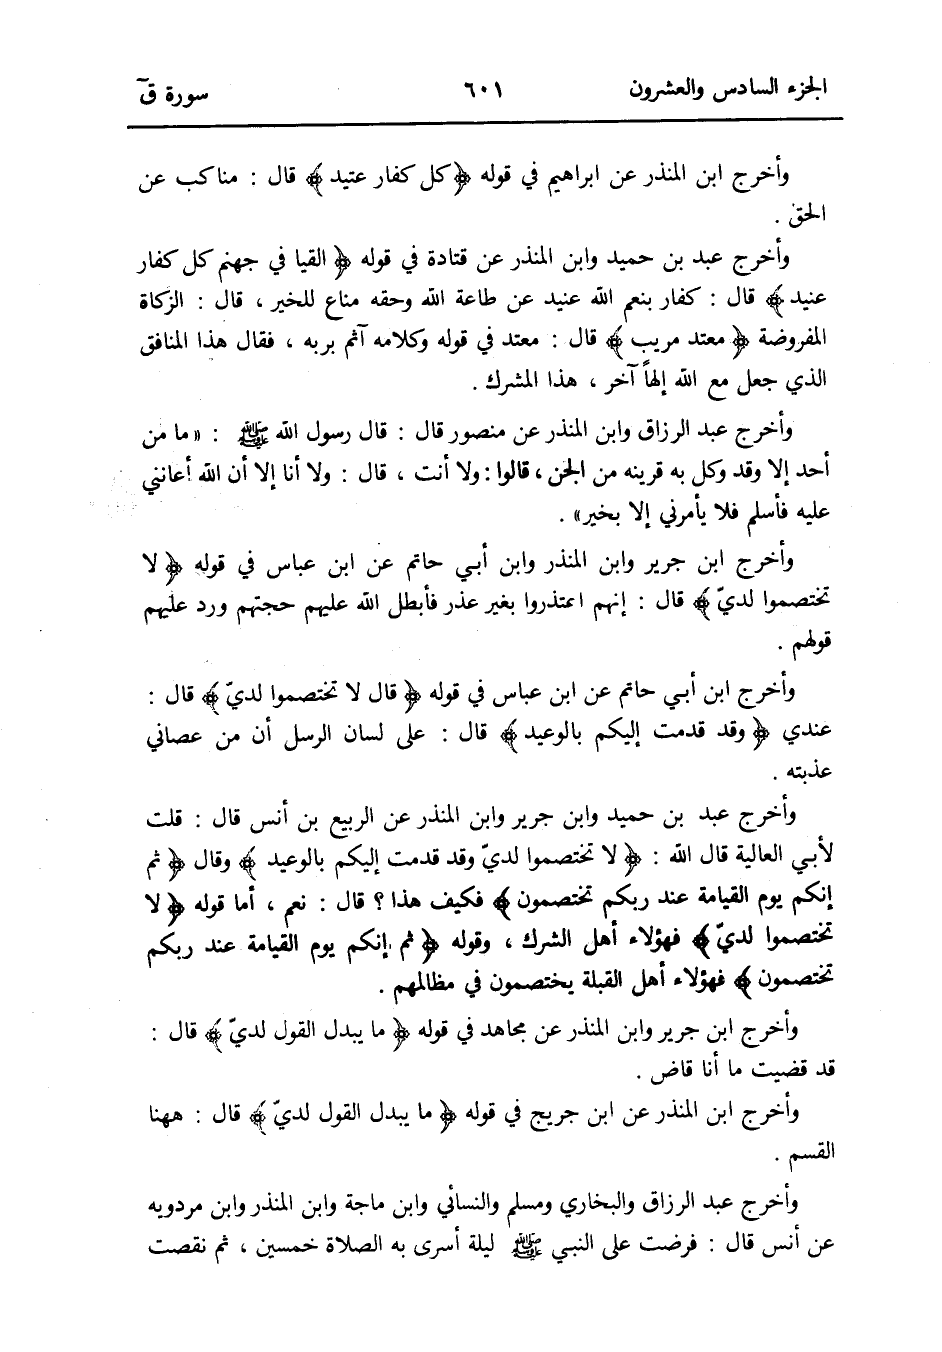 الجزء السادس والعشرون ٦٠١ سورة قۤ
وأخرج ابن المنذر عن ابراهيم في قوله ﴿كل كفار عتيد﴾ قال : مناكب عن
الحق .
وأخرج عبد بن حميد وابن المنذر عن قتادة في قوله ﴿ القيا في جهنم كل كفار
عنيد﴾ قال : كفار بنعم الله عنيد عن طاعة الله وحقه مناع للخير ، قال : الزكاة
المفروضة ﴿ معتد مريب﴾ قال : معتد في قوله وكلامه آثم بربه ، فقال هذا المنافق
الذي جعل مع الله إلهاً آخر ، هذا المشرك .
وأخرج عبد الرزاق وابن المنذر عن منصور قال : قال رسول الله ﷺ : «ما من
أحد إلا وقد وكل به قرينه من الجن ، قالوا : ولا أنت ، قال : ولا أنا إلا أن الله أعانني
عليه فأسلم فلا يأمرني إلا بخير» .
وأخرج ابن جرير وابن المنذر وابن أبي حاتم عن ابن عباس في قوله ﴿ لا
تختصموا لديّ﴾ قال : إنهم اعتذروا بغير عذر فأبطل الله عليهم حجتهم ورد عليهم
قولهم .
وأخرج ابن أبي حاتم عن ابن عباس في قوله ﴿ قال لا تختصموا لديّ﴾ قال :
عندي ﴿ وقد قدمت إليكم بالوعيد﴾ قال : على لسان الرسل أن من عصاني
عذبته .
وأخرج عبد بن حميد وابن جرير وابن المنذر عن الربيع بن أنس قال : قلت
لأبي العالية قال الله : ﴿ لا تختصموا لديّ وقد قدمت إليكم بالوعيد ﴾ وقال ﴿ ثم
إنكم يوم القيامة عند ربكم تختصمون﴾ فكيف هذا ؟ قال : نعم ، أما قوله ﴿ لا
تختصموا لديّ﴾ فهؤلاء أهل الشرك ، وقوله ﴿ ثم إنكم يوم القيامة عند ربكم
تختصمون﴾ فهؤلاء أهل القبلة يختصمون في مظالمهم .
وأخرج ابن جرير وابن المنذر عن مجاهد في قوله ﴿ ما يبدل القول لديّ﴾ قال :
قد قضيت ما أنا قاض .
وأخرج ابن المنذر عن ابن جريج في قوله ﴿ ما يبدل القول لديّ﴾ قال : ههنا
القسم .
وأخرج عبد الرزاق والبخاري ومسلم والنسائي وابن ماجة وابن المنذر وابن مردويه
عن أنس قال : فرضت على النبي ﷺ ليلة أسرى به الصلاة خمسين ، ثم نقصت